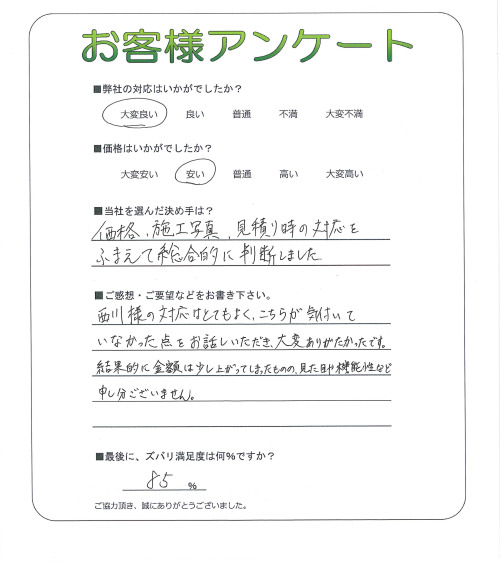 お客様アンケート
■弊社の対応はいかがでしたか？
大変良い 良い 普通 不満 大変不満
■価格はいかがでしたか？
大変安い 安い 普通 高い 大変高い
■当社を選んだ決め手は？
価格、施工写真、見積り時の対応を
ふまえて総合的に判断しました
■ご感想・ご要望などをお書き下さい。
西川様の対応はとてもよく、こちらが気付いて
いなかった点をお話しいただき、大変ありがたかったです。
結果的に金額は少し上がってしまったものの、見た目や機能性など
申し分ございません。
■最後に、ズバリ満足度は何％ですか？
85 ％
ご協力頂き、誠にありがとうございました。